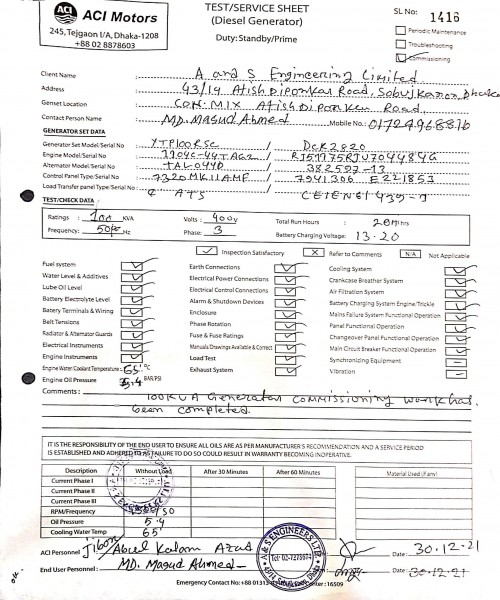 ACI
ACI Motors
245, Tejgaon I/A, Dhaka-1208
+88 02 8878603
TEST/SERVICE SHEET
(Diesel Generator)
Duty: Standby/Prime
SL No: 1416
Periodic Maintenance
Troubleshooting
Commissioning
Client Name A and S Engineering Limited
Address 43/14 Atish Diponkar Road, Sobujkanon, Dhaka
Genset Location Con. Mix Atish Diponker Road
Contact Person Name MD. Masud Ahmed Mobile No.: 01724968816
GENERATOR SET DATA
Generator Set Model/Serial No YTP100RSC / DCR2820
Engine Model/Serial No 1104C-44TAG2 /
Alternator Model/Serial No TAL04YD /
Control Panel Type/Serial No 7320 MKII AMF / 7941306 E22185J
Load Transfer panel Type/Serial No ATS /
TEST/CHECK DATA:
Ratings : 100 KVA Volts : 400V Total Run Hours : hrs
Frequency: 50 Hz Phase : 3 Battery Charging Voltage: 13.20
✓ Inspection Satisfactory X Refer to Comments N/A Not Applicable
Fuel system
Water Level & Additives
Lube Oil Level
Battery Electrolyte Level
Batery Terminals & Wiring
Belt Tensions
Radiator & Alternator Guards
Electrical Instruments
Engine Instruments
Engine Water Coolant Temperature: 65 °C
Engine Oil Pressure 5.4 BAR/PSI
Earth Connections
Electrical Power Connections
Electrical Control Connections
Alarm & Shutdown Devices
Enclosure
Phase Rotation
Fuse & Fuse Ratings
Manuals/Drawings Available & Correct
Load Test
Exhaust System
Cooling System
Crankcase Breather System
Air Filtration System
Battery Charging System Engine/Trickle
Mains Failure System Functional Operation
Panel Functional Operation
Changeover Panel Functional Operation
Main Circuit Breaker Functional Operation
Synchronizing Equipment
Vibration
Comments : 100KVA Generator commissioning work has
been completed.
IT IS THE RESPONSIBILITY OF THE END USER TO ENSURE ALL OILS ARE AS PER MANUFACTURER'S RECOMMENDATION AND A SERVICE PERIOD
IS ESTABLISHED AND ADHERED TO AS FAILURE TO DO SO COULD RESULT IN WARRANTY BECOMING INOPERATIVE.
Description Without Load After 30 Minutes After 60 Minutes Material Used (if any)
Current Phase I
Current Phase II
Current Phase III
RPM/Frequency 1500/50
Oil Pressure 5.4
Cooling Water Temp 65
ACI Personnel Abul Kalam Azad Date: 30.12.21
End User Personnel MD. Masud Ahmed Date: 30.12.21
A & S ENGINEERS LTD.
Emergency Contact No:+88 01313 16509